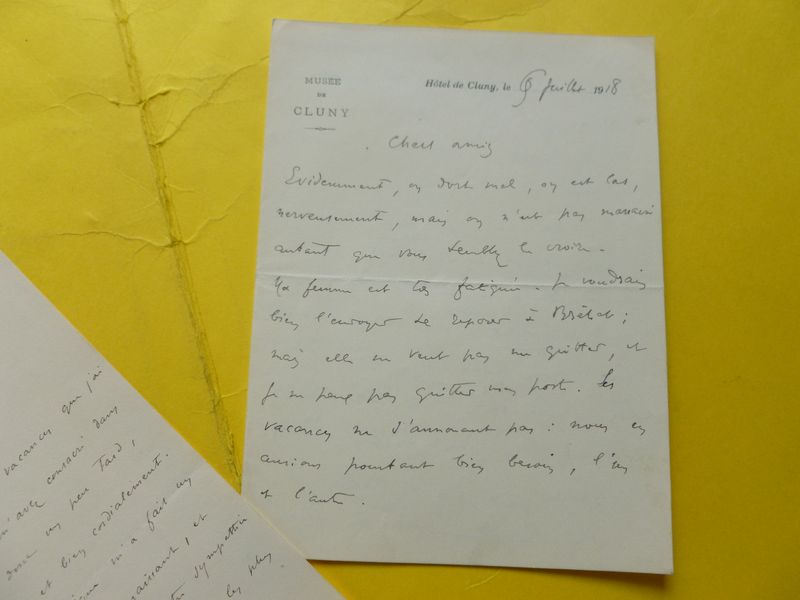 MUSÉE
DE
CLUNY
Hôtel de Cluny, le 6 Juillet 1918
Chers amis
Evidemment, on dort mal, on est las,
nerveusement, mais on n'est pas mauvais
autant que vous semblez le croire.
Ma femme est très fatiguée. Je voudrais
bien l'envoyer se reposer à Bréhat ;
mais elle ne veut pas me quitter, et
je ne peux pas quitter mon poste. Les
vacances ne s'annoncent pas : nous en
aurions pourtant bien besoin, l'un
et l'autre.
vacances que j'ai
m'avez consacré dans
donc un peu tard,
et bien cordialement.
m'a fait un
et
sympathie
les plus